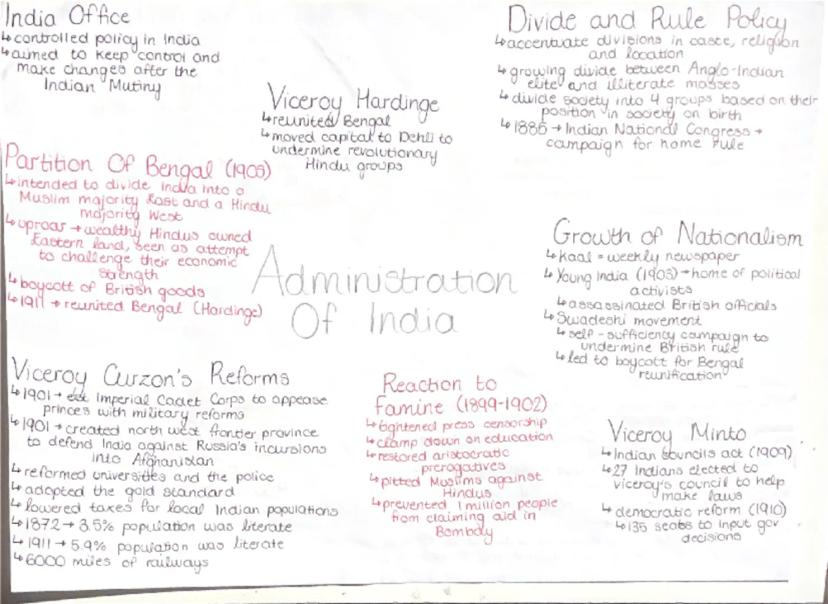 India Office
↳controlled policy in India
↳aimed to keep control and
make changes after the
Indian Mutiny
Divide and Rule Policy
↳accentuate divisions in caste, religion
and location
↳growing divide between Anglo-Indian
elite and illiterate masses
↳divide society into 4 groups based on their
position in society on birth
↳1885 → Indian National Congress →
campaign for home rule
Viceroy Hardinge
↳reunited Bengal
↳moved capital to Dehli to
undermine revolutionary
Hindu groups
Partition Of Bengal (1905)
↳intended to divide India into a
Muslim majority East and a Hindu
majority West
↳uproar → wealthy Hindus owned
Eastern land, seen as attempt
to challenge their economic
strength
↳boycott of British goods
↳1911 → reunited Bengal (Hardinge)
Administration
Of India
Growth of Nationalism
↳Kaal = weekly newspaper
↳Young India (1905) → home of political
activists
↳assassinated British officials
↳Swadeshi movement
↳self-sufficiency campaign to
undermine British rule
↳led to boycott for Bengal
reunification
Viceroy Curzon's Reforms
↳1901 → est Imperial Cadet Corps to appease
princes with military reforms
↳1901 → created north west frontier province
to defend India against Russia's incursions
into Afghanistan
↳reformed universities and the police
↳adopted the gold standard
↳lowered taxes for local Indian populations
↳1872 → 3.5% population was literate
↳1911 → 5.9% population was literate
↳6000 miles of railways
Reaction to
Famine (1899-1902)
↳tightened press censorship
↳clamp down on education
↳restored aristocratic
prerogatives
↳pitted Muslims against
Hindus
↳prevented 1 million people
from claiming aid in
Bombay
Viceroy Minto
↳Indian councils act (1909)
↳27 Indians elected to
viceroy's council to help
make laws
↳democratic reform (1910)
↳135 seats to input gov
decisions